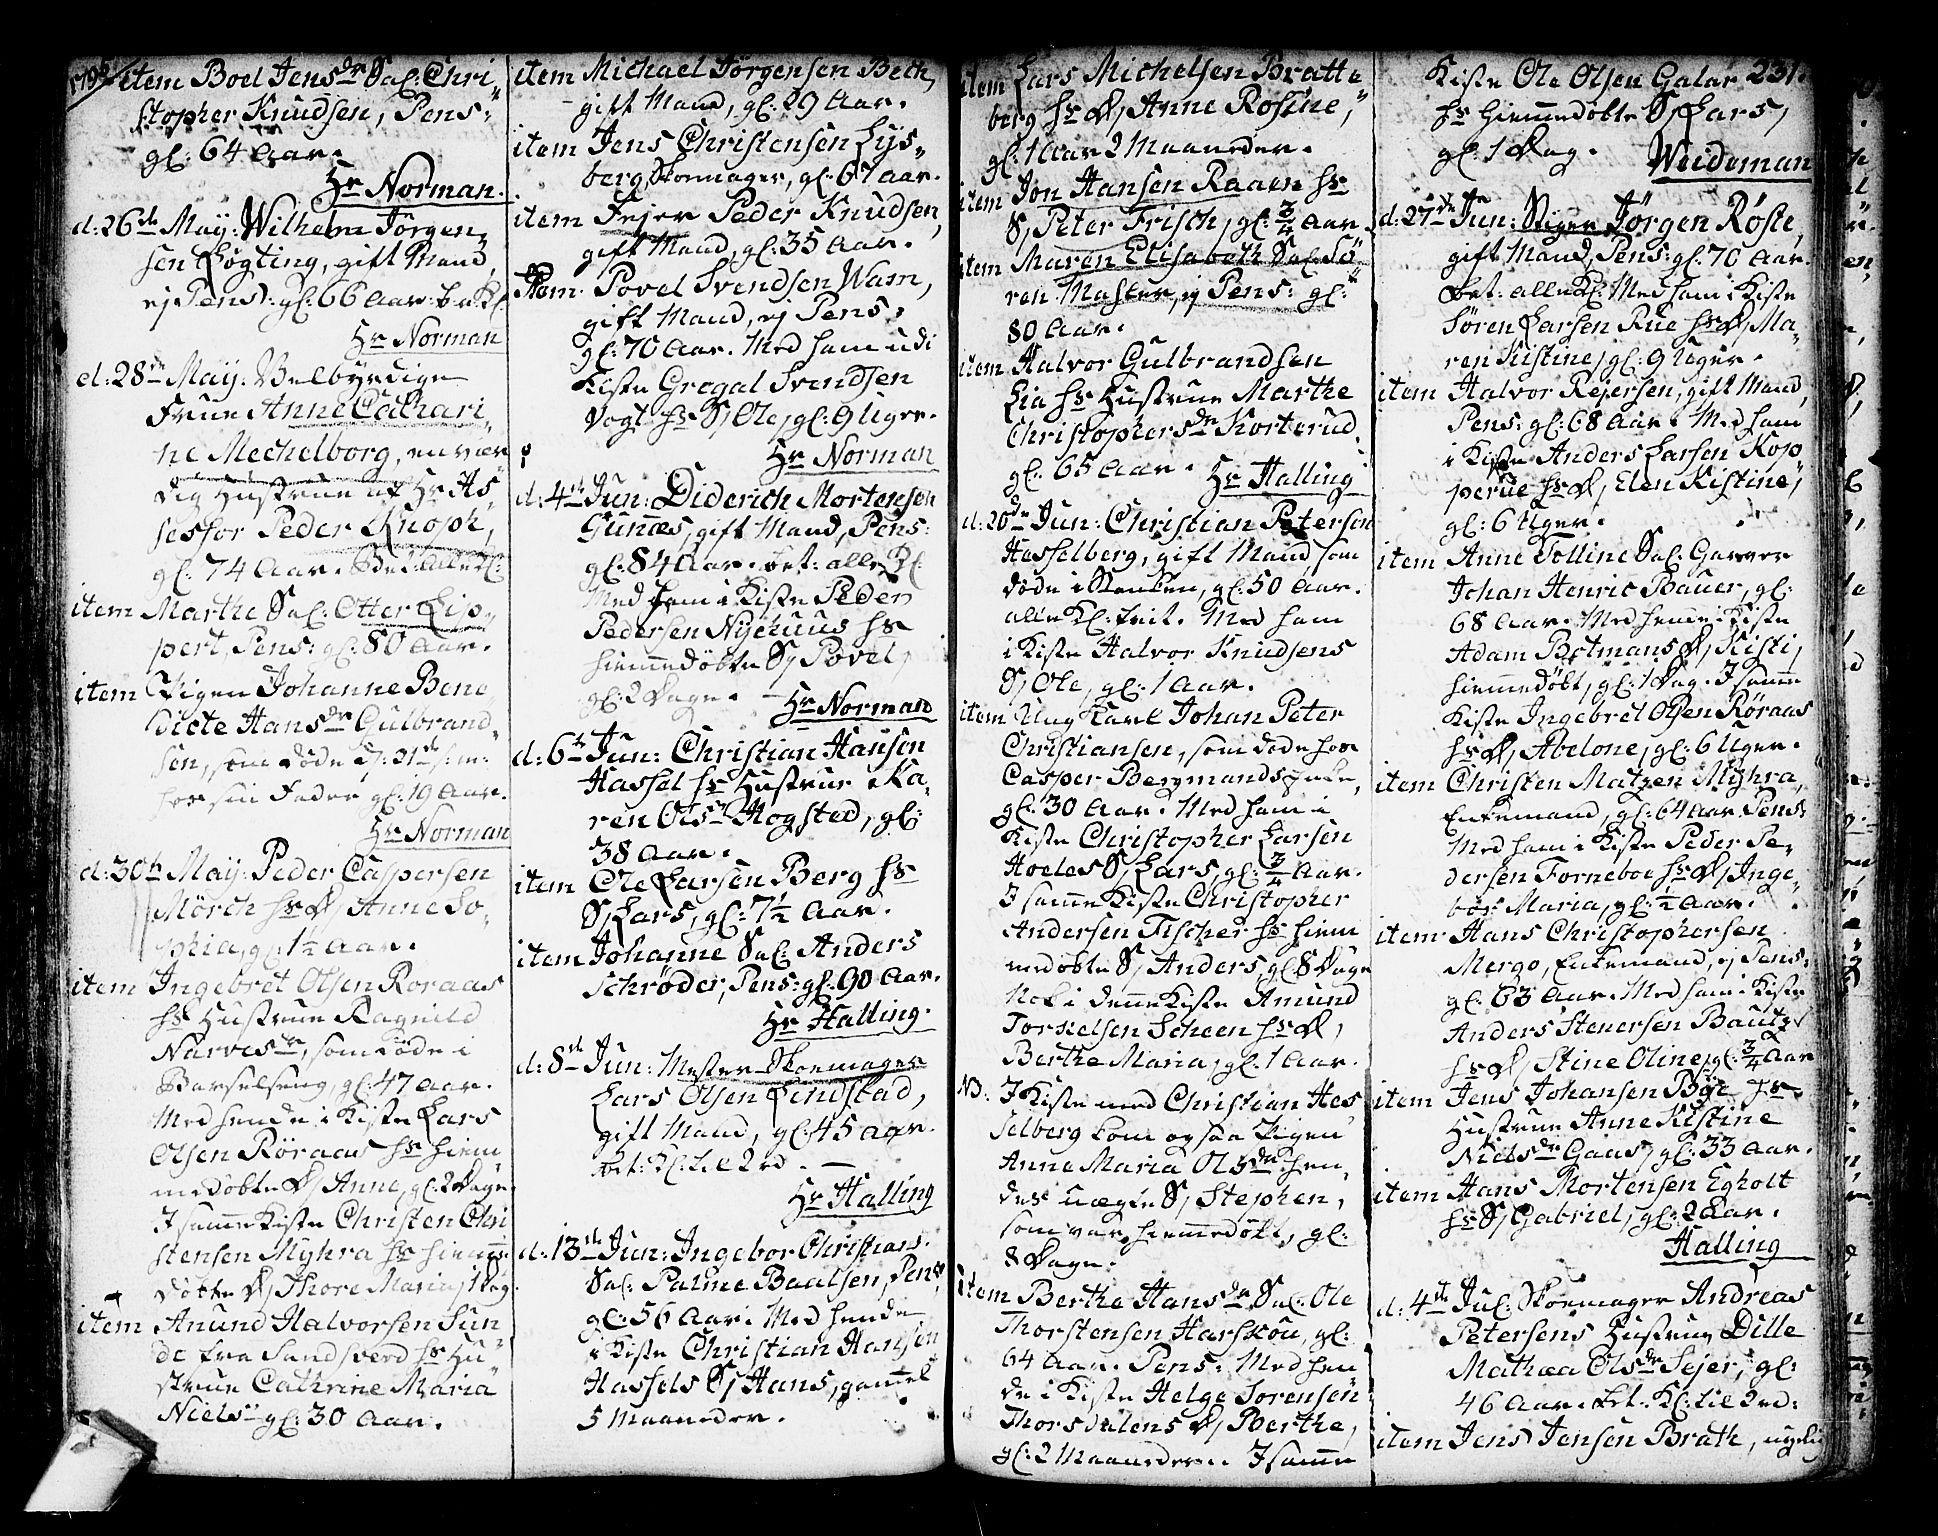 1795
item Boel Jensdr Sal: Chri-
stopher Knudsen, Pens:
gl: 64 Aar.
Hr Norman.
d: 26de May: Wilhelm Jörgen-
sen Fögting, gift Mand,
ej Pens: gl: 66 Aar: bet: Kl:
Hr Norman
d: 28de May: Velbyrdige
Frue Anne Cathari-
ne Mechelborg, en vær-
dig Hustrue af Hr As-
sessor Peder Knoph,
gl: 74 Aar. Bet: alle Kl:
item Marthe Sal: Otter Lip-
pert, Pens: gl: 80 Aar.
item Pigen Johanne Bene-
dicte Hansdr Gulbrand-
sen, som döde d: 21de
hos sin Fader gl: 19 Aar.
Hr Norman
d: 30te May: Peder Caspersen
Mörch hs D, Anne So-
phia, gl: 1½ Aar.
item Ingebret Olsen Roraas
hs Hustrue Ragnild
Narvesdr, som döde i
Barselseng, gl: 47 Aar.
Med hende i Kiste Lars
Olsen Röraas hs hiem-
medöbte D, Anne, gl: 2 Dage.
I samme Kiste Christen Chri-
stensen Myhra hs hiemme-
döbte D, Thore Maria, 1 Dag.
item Anund Halvorsen Sun-
de fra Sandsverd hs Hu-
strue Cathrine Maria
Nielsdr gl: 30 Aar.
item Michael Jörgensen Bech,
gift Mand, gl: 29 Aar.
item Jens Christensen Lys-
berg, Skomager, gl: 67 Aar.
item Fejer Peder Knudsen,
gift Mand, gl: 35 Aar.
item Povel Svendsen Wam,
gift Mand, ej Pens:
gl: 70 Aar. Med ham udi
Kiste Gregal Svendsen
Vogt hs S, Ole, gl: 9 Uger.
Hr Norman
d: 4de Jun: Diderich Mortensen
Gunnæs, gift Mand, Pens:
gl: 84 Aar. bet: alle Kl:
Med ham i Kiste Peder
Pedersen Nyehuus hs
hiemmedöbte S, Povel,
gl: 2 Dage.
Hr Norman
d: 6te Jun: Christian Hansen
Hassel hs Hustrue Ka-
ren Olsdr Hogsted, gl:
38 Aar.
item Ole Larsen Berg hs
S, Lars, gl: 7½ Aar.
item Johanne Sal: Anders
Schröder, Pens: gl: 90 Aar.
Hr Halling.
d: 8de Jun: Mester Skoemager
Lars Olsen Lindstad,
gift Mand, gl: 45 Aar.
bet: Kl: til 2rd.
Hr Halling
d: 13de Jun: Ingebor Christians:
Sal: Palme Baalsen, Pens:
gl: 56 Aar. Med hende
i Kiste Christian Hansen
Hassels S, Hans, gammel
5 Maaneder.
item Lars Michelsen Bratte-
berg hs D, Anne Rosine,
gl: 1 Aar 2 Maaneder.
item Jon Hansen Raaen hs
S, Peter Frisch, gl: ¾ Aar.
item Maren Elisabeth Sal: Sö-
ren Master, ej Pens: gl:
80 Aar.
item Halvor Gulbrandsen
Lia hs Hustrue Marthe
Christophersdr Korterud,
gl: 65 Aar.
Hr Halling
d: 20de Jun: Christian Petersen
Hasselberg, gift Mand, som
döde i Stanken, gl: 50 Aar.
alle Kl: frit. Med ham
i Kiste Halvor Knudsens
S, Ole, gl: 1 Aar.
item Ung Karl Johan Peter
Christiansen, som döde hos
Casper Bergmand
gl: 30 Aar. Med ham i
Kiste Christopher Larsen
Hoeles S, Lars, gl: ¾ Aar.
I samme Kiste Christopher
Andersen Fischer hs hiem-
medöbte S, Anders, gl: 8 Dage
Nok i denne Kiste Amund
Torkelsen Scheen hs D,
Berthe Maria, gl: 1 Aar.
NB: I Kiste med Christian Has-
selberg kom ogsaa Pigen
Anne Maria Olsdr hen-
des uægte S, Stephen,
som var hiemmedöbt, gl:
8 Dage.
item Berthe Hansdr Sal: Ole
Thorstensen Harskou, gl:
64 Aar. Pens: Med hen-
de i Kiste Helge Sorensen
Thorsdalens D, Berthe,
gl: 2 Maaneder. I samme
231.
Kiste Ole Olsen Galar
hs hiemmedöbte S, Lars,
gl: 1 Dag.
Weideman
d: 27de Jun: Stiger Jörgen Röste,
gift Mand, Pens: gl: 70 Aar.
Bet: alle Kl: Med ham i Kiste
Sören Larsen Rue hs D, Ma-
ren Kistine, gl: 9 Uger.
item Halvor Rejersen, gift Mand,
Pens: gl: 68 Aar. Med ham
i Kiste Anders Larsen Kop-
perue hs D, Elen Kistine,
gl: 6 Uger.
item Anne Tolline Sal: Garver
Johan Henric Bauer, gl:
68 Aar. Med hende i Kiste
Adam Botmans D, Kisti,
hiemmedöbt, gl: 1 Dag. I samme
Kiste Ingebret Olsen Röraas
hs D, Abelone, gl: 6 Uger.
item Christen Matzen Myhra,
Enkemand, gl: 64 Aar Pens:
Med ham i Kiste Peder Pe-
dersen Forneboe hs D, Inge-
bor Maria, gl: ½ Aar.
item Hans Christophersen
Mergo, Enkemand, ej Pens:
gl: 63 Aar. Med ham i Kiste
Anders Stenersen Bautz
hs D, Stine Oline, gl: ¾ Aar
item Jens Johansen Bye hs
Hustrue Anne Kistine
Nielsdr Gaas, gl: 33 Aar.
item Hans Mortensen Egholt
hs S, Gabriel, gl: 2 Aar.
Halling
d: 4de Jul: Skoemager Andreas
Petersens Hustrue Dille
Mathæa Olsdr Sejer, gl:
46 Aar. bet: Kl: til 2rd:
item Jens Jensen Brath, ugtelig